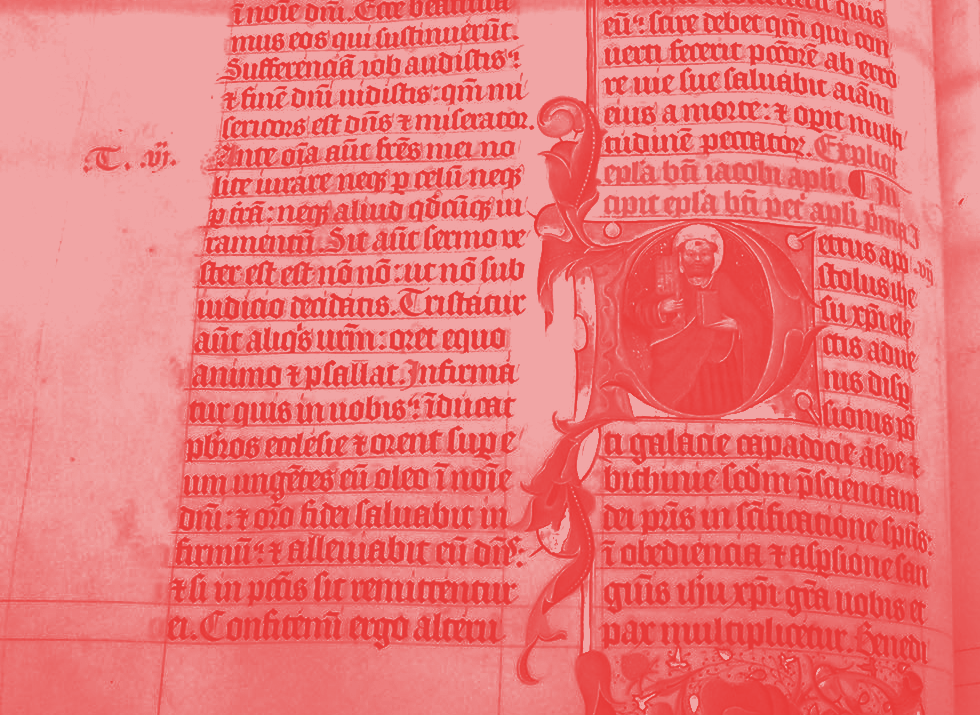 ī noīe dnī. Ecce beatifica
mus eos qui sustinuerūt.
Sufferenciā iob audistis:
⁊ finē dnī uidistis: qm̄ mi
sericors est dn̄s ⁊ miserator.
.T. .vj.
Ante oīa aūt frēs mei no
lite iurare neqꝫ ꝑ celū neqꝫ
ꝑ t̄rā: neqꝫ aliud qdcūqꝫ iu
ramentū. Sit aūt sermo ve
ster est est nō nō: ut nō sub
iudicio decidatis. Tristatur
aūt aliqͥs urm̄: oret equo
animo ⁊ psallat. Infirma
tur quis in uobis: īducat
pb̄ros ecclesie ⁊ orent suꝑ e
um ungētes eū oleo ī noīe
dnī: ⁊ orō fidei saluabit in
firmū: ⁊ alleuiabit eū dn̄s:
⁊ si in pctīs sit remittentur
ei. Confitemī ergo alteru
quis
eū: scire debet qm̄ qui con
uerti fecerit pctōrē ab erro
re uie sue saluabit aīam
eius a morte: ⁊ opit mult
tudinē peccatoꝝ. Explicit
epl̄a bt̄i iacobi apl̄i. In
cipit epl̄a bt̄i pet apl̄i prīa I
Petrus ap .vij
stolus ihe
su xp̄i ele
ctis adue
nis disp
sionis pō
ti galacie capadocie asye ⁊
bithinie scdm̄ p̄scienciam
dei pr̄is in sc̄ificatione sp̄us:
ī obediencia ⁊ aspsione san
guīs ih̄u xp̄i grā uobis et
pax multiplicetur. Benedi